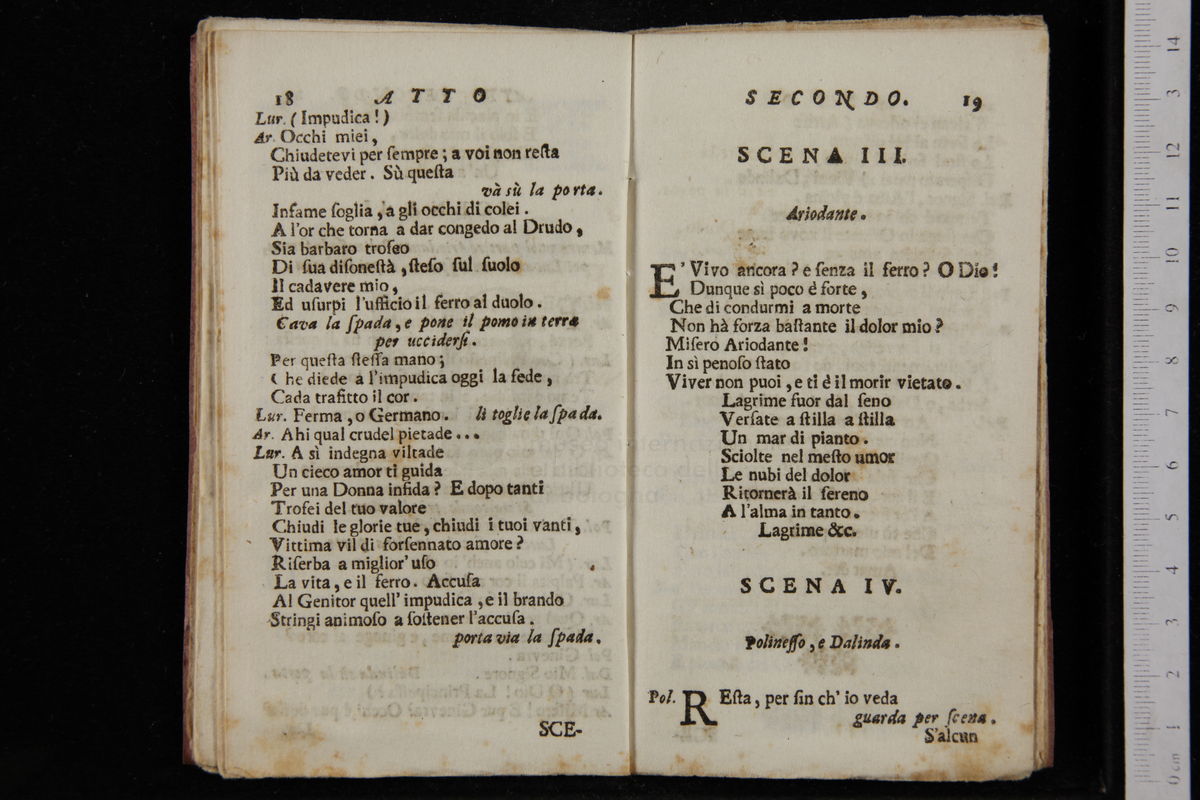 18 ATTO
Lur. (Impudica!)
Ar. Occhi miei,
Chiudetevi per ſempre; a voi non reſta
Più da veder. Sù queſta
và sù la porta.
Infame ſoglia, a gli occhi di colei.
A l'or che torna a dar congedo al Drudo,
Sia barbaro trofeo
Di ſua diſoneſtà, ſteſo ſul ſuolo
Il cadavere mio,
Ed uſurpi l'ufficio il ferro al duolo.
Cava la ſpada, e pone il pomo in terra
per ucciderſi.
Per queſta ſteſſa mano;
Che diede a l'impudica oggi la fede,
Cada trafitto il cor.
Lur. Ferma, o Germano. li toglie la ſpada.
Ar. Ahi qual crudel pietade...
Lur. A sì indegna viltade
Un cieco amor ti guida
Per una Donna infida? E dopo tanti
Trofei del tuo valore
Chiudi le glorie tue, chiudi i tuoi vanti,
Vittima vil di forſennato amore?
Riſerba a miglior' uſo
La vita, e il ferro. Accuſa
Al Genitor quell' impudica, e il brando
Stringi animoſo a ſoſtener l'accuſa.
porta via la ſpada.
SCE-
SECONDO. 19
SCENA III.
Ariodante.
E' Vivo ancora? e ſenza il ferro? O Dio!
Dunque sì poco è forte,
Che di condurmi a morte
Non hà forza baſtante il dolor mio?
Miſero Ariodante!
In sì penoſo ſtato
Viver non puoi, e ti è il morir vietato.
Lagrime fuor dal ſeno
Verſate a ſtilla a ſtilla
Un mar di pianto.
Sciolte nel meſto umor
Le nubi del dolor
Ritornerà il ſereno
A l'alma in tanto.
Lagrime &c.
SCENA IV.
Polineſſo, e Dalinda.
Pol. REſta, per fin ch' io veda
guarda per ſcena.
S'alcun
0 cm 1 2 3 4 5 6 7 8 9 10 11 12 13 14